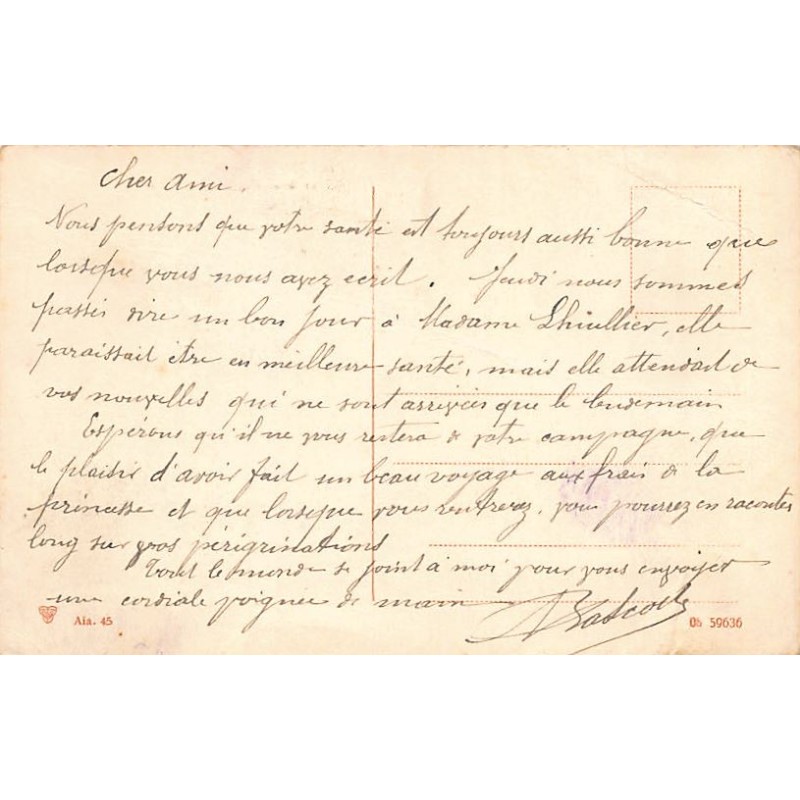 Cher ami.
Nous pensons que votre santé est toujours aussi bonne que
lorsque vous nous avez ecrit. Jeudi nous sommes
passés dire un bon jour à Madame Lhuillier, elle
paraissait être en meilleure santé, mais elle attendait de
vos nouvelles qui ne sont arrivées que le lendemain
Esperons qu'il ne vous restera de votre campagne, que
le plaisir d'avoir fait un beau voyage aux frais de la
princesse et que lorsque vous rentrerez, vous pourrez en raconter
long sur vos pérégrinations
Tout le monde se joint à moi pour vous envoyer
une cordiale poignee de main
Aia. 45
05 59636